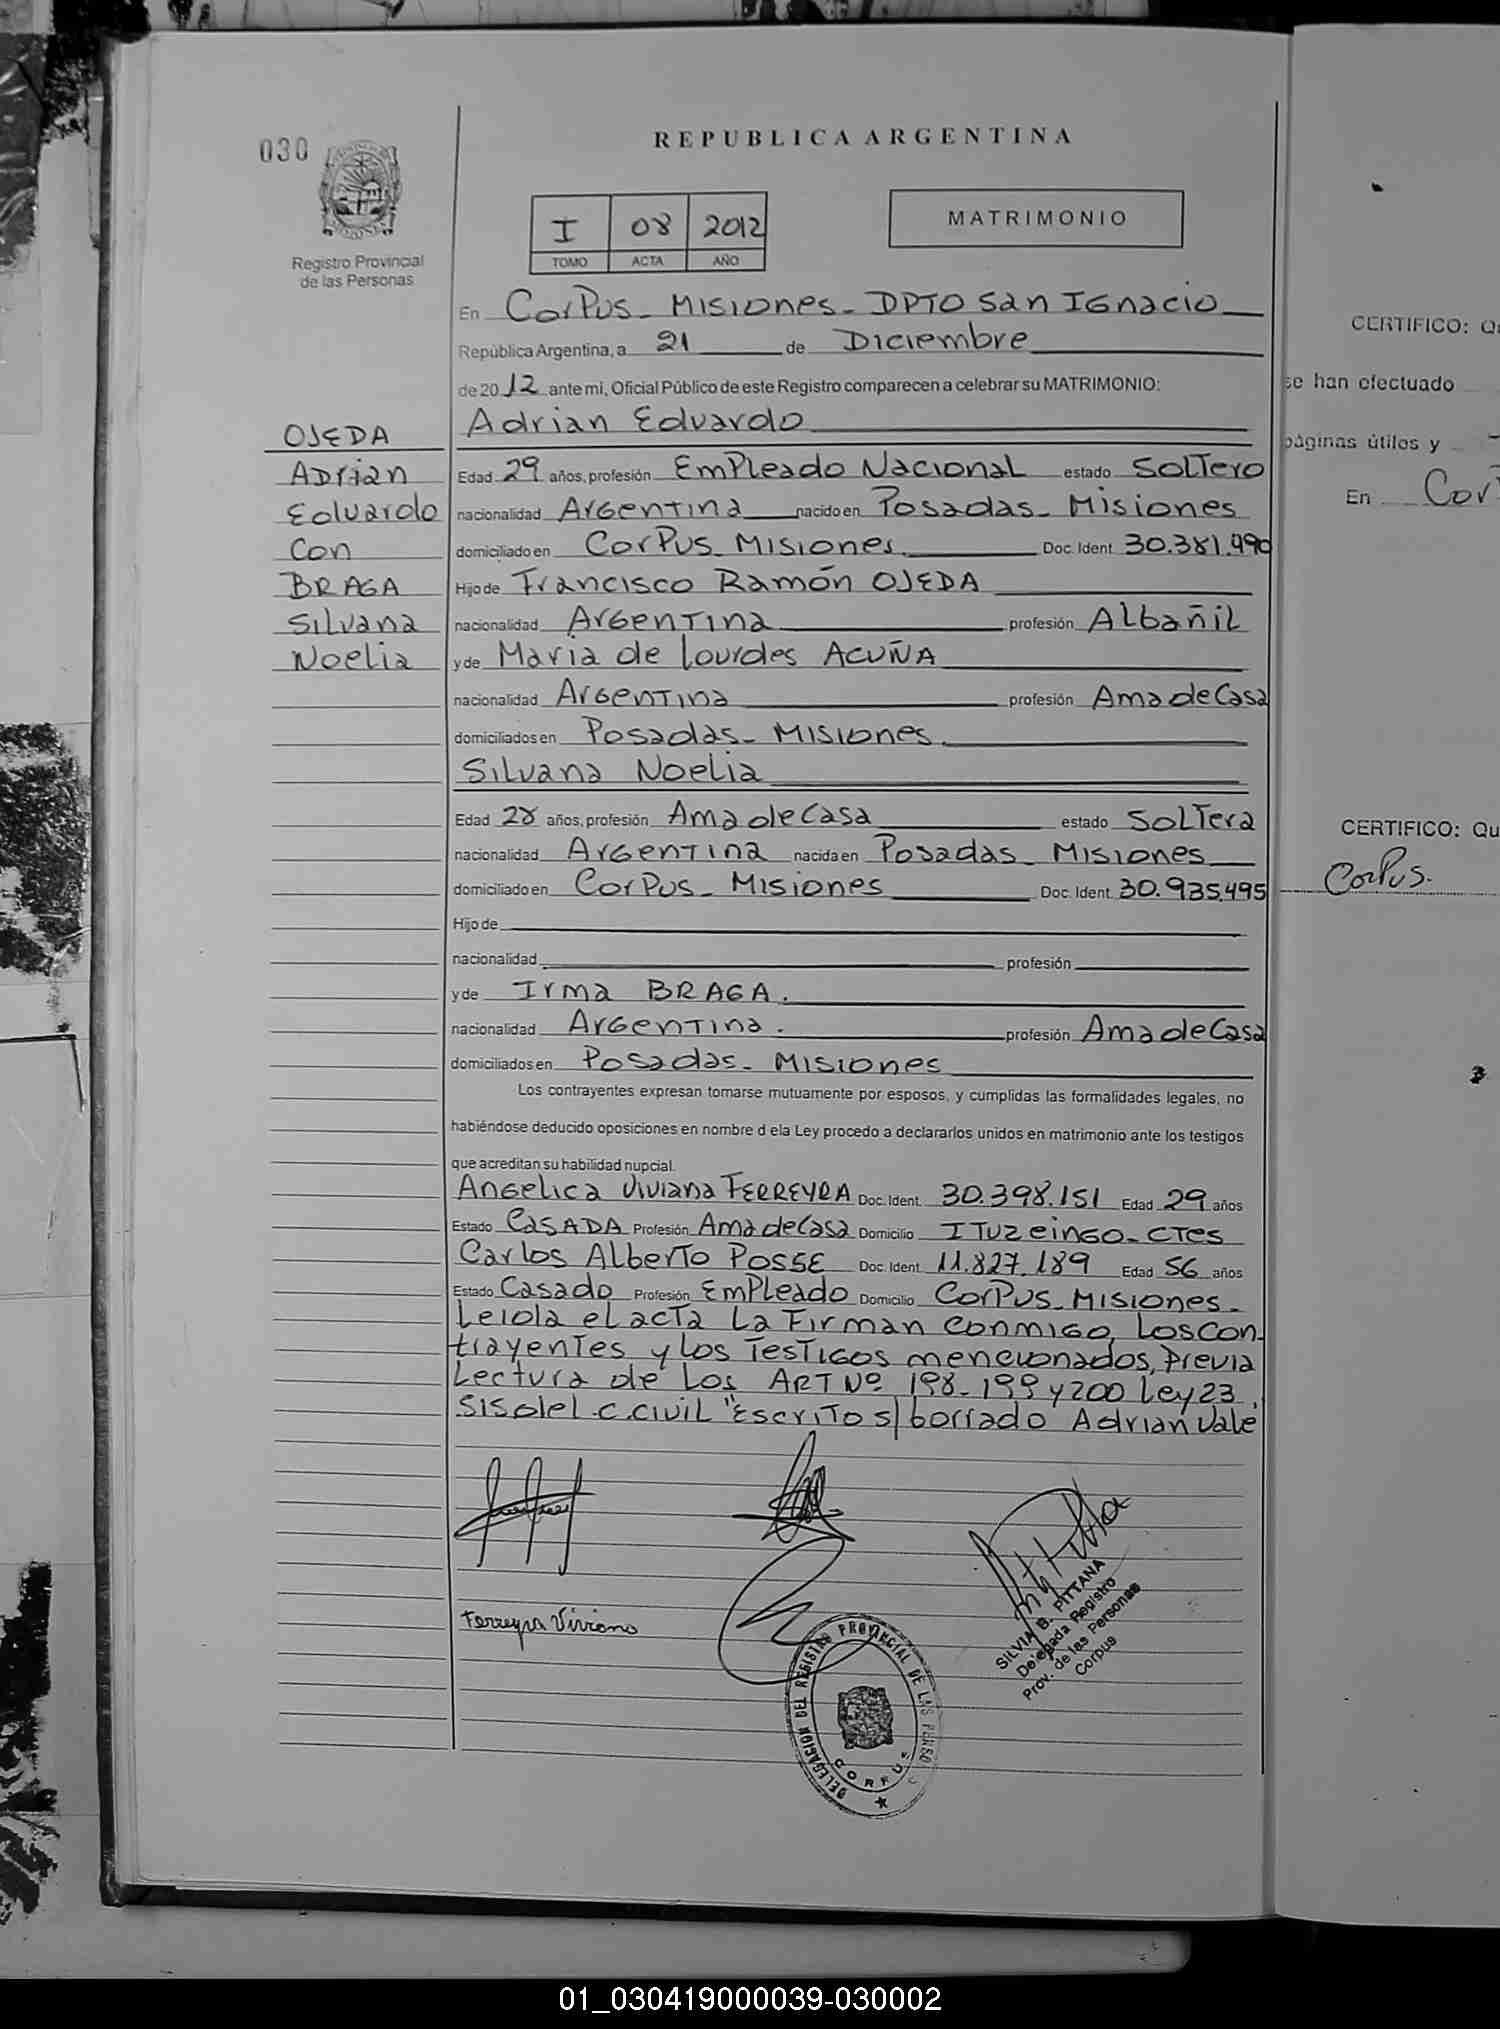 030
Registro Provincial
de las Personas
REPUBLICA ARGENTINA
I 08 2012
TOMO ACTA AÑO
MATRIMONIO
En Corpus - Misiones - DPTO San Ignacio
República Argentina, a 21 de Diciembre
de 2012 ante mi, Oficial Público de este Registro comparecen a celebrar su MATRIMONIO:
OJEDA
Adrian
Eduardo
Con
BRAGA
Silvana
Noelia
Adrian Eduardo
Edad 29 años, profesión Empleado Nacional estado Soltero
nacionalidad Argentina nacido en Posadas - Misiones
domiciliado en Corpus - Misiones Doc. Ident. 30.381.490
Hijo de Francisco Ramón OJEDA
nacionalidad Argentina profesión Albañil
y de Maria de Lourdes ACUÑA
nacionalidad Argentina profesión Ama de Casa
domiciliados en Posadas - Misiones
Silvana Noelia
Edad 28 años, profesión Ama de Casa estado Soltera
nacionalidad Argentina nacida en Posadas - Misiones
domiciliado en Corpus - Misiones Doc. Ident. 30.935.495
Hijo de
nacionalidad profesión
y de Irma BRAGA.
nacionalidad Argentina. profesión Ama de Casa
domiciliados en Posadas - Misiones
Los contrayentes expresan tomarse mutuamente por esposos, y cumplidas las formalidades legales, no
habiéndose deducido oposiciones en nombre d ela Ley procedo a declararlos unidos en matrimonio ante los testigos
que acreditan su habilidad nupcial.
Angelica Viviana FERREYRA Doc. Ident. 30.398.151 Edad 29 años
Estado CASADA Profesión Ama de Casa Domicilio Ituzeingo - CTes
Carlos Alberto POSSE Doc. Ident. 11.827.189 Edad 56 años
Estado Casado Profesión Empleado Domicilio Corpus - Misiones -
Leiola el acta La Firman conmigo, Los con-
trayentes y Los Testigos mencionados, Previa
Lectura de Los ART Nº 198-199 y 200 Ley 23.
515 del C. Civil "Escrito s/ borrado Adrian Vale
Ferreyra Viviana
SILVIA B. PITTANA
Delegada Registro
Prov. de las Personas
Corpus
DELEGACION DEL REGISTRO PROVINCIAL DE LAS PERSO
CORPUS
CERTIFICO: Qu
se han efectuado
páginas útiles y
En Corp
CERTIFICO: Qu
Corpus.
01_030419000039-030002